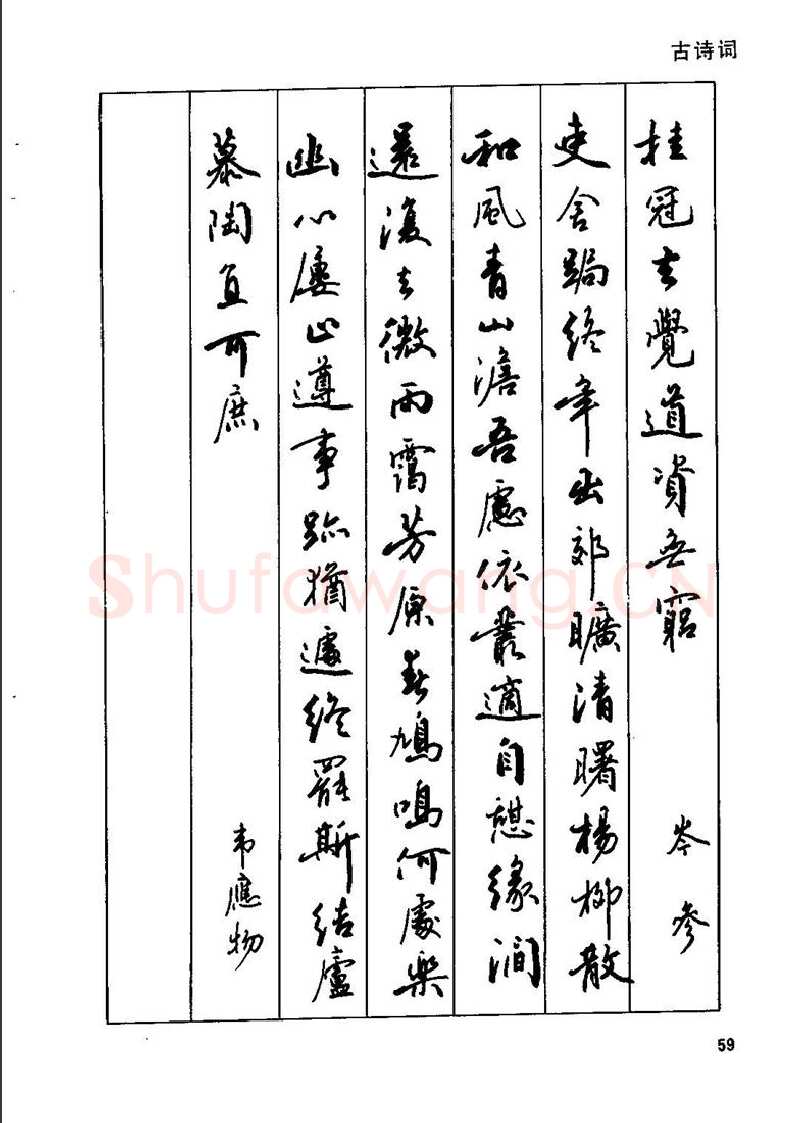 古诗词
挂冠去覺道資無窮
岑參
吏舍跼終年出郊曠清曙楊柳散
和風青山澹吾慮依叢適自憩緣澗
還復去微雨靄芳原春鳩鳴何處樂
幽心屢止遵事跡猶遽終罷斯結廬
慕陶直可庶
韦應物
Shufawang.CN
59